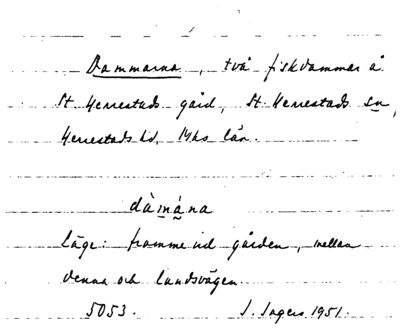 Dammarna, två fiskdammar å
St. Herrestads gård, St. Herrestads sn,
Herrestads hd, Mhs län.
dàmána
Läge: framme vid gården, mellan
denna och landsvägen.
5053. J. Ingers 1951.